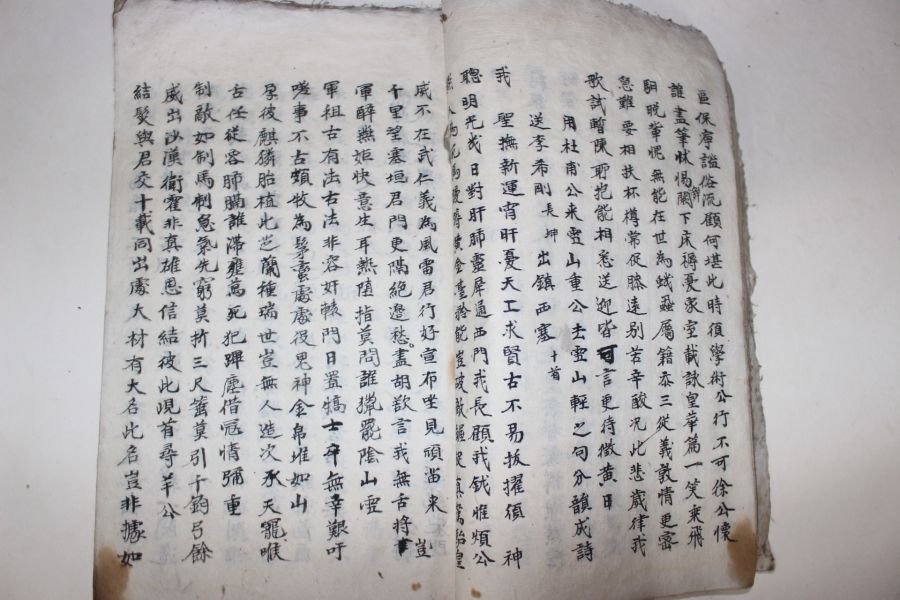 區保瘵謐俗流顧何堪此時須學術公行不可徐公懷
誰盡筆牀惕關下床得憂家室載詠皇華篇一笑乘飛
駉脫輩愧無能在世為蛾蝨屬籍忝三從義敦情更密
急難要相扶杯樽常促膝遠別苦辛酸况此悲歲律我
歌試暫陳聊抱能相悉送迎皆可言更待徵黃日
用杜甫公来雪山重公去雪山輕之句分韻成詩
送李希剛長坤出鎮西塞十首
我聖撫新運宵旰憂天工求賢古不易拔擢須神
聰明先幾日對肝肺靈犀通西門我長顧我鉞惟煩公
威不在武仁義為風雷君行好宣布坐見頑湍来豈
千里望塞垣君門更隔絕邊愁盡胡欲言我無舌將
軍醉燕姬快意生耳熱墮指莫問誰獵罷陰山雪
軍祖古有法古法非容奸轅門日置犒士卒無辛艱吁
嗟事不古頗牧為髦蠻處處役鬼神金帛堆如山
孕彼麒麟胎植此芝蘭種瑞世豈無人造次承天寵喉
古任從容肺膈誰滯壅萬死犯蹕塵借冦情彌重
制敵如制馬制急氣先窮莫折三尺箠莫引十鈞弓餘
威出沙漠衛霍非真雄恩信結彼此現首尋羊公
結髮與君交十載同出處大材有大名此名豈非據如